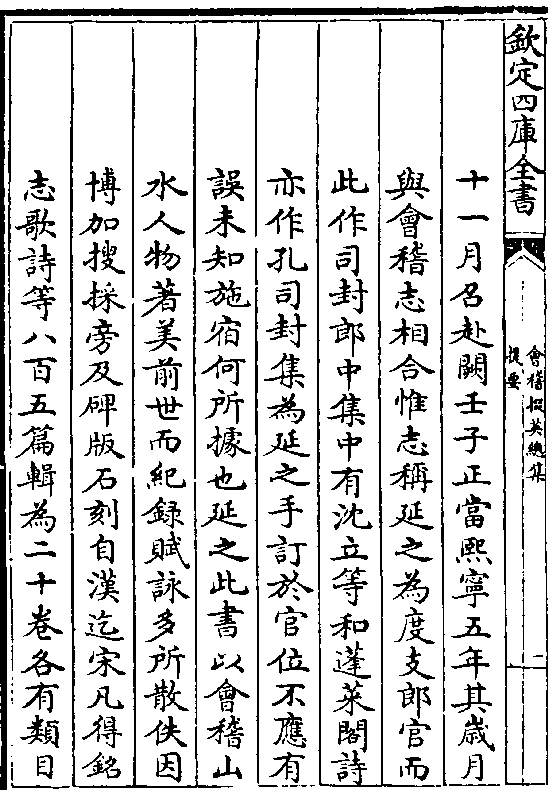 欽定四庫全書
會稽掇英總集
提要
二
十一月召赴闕壬子正當熙寧五年其歲月
與會稽志相合惟志稱延之為度支郎官而
此作司封郎中集中有沈立等和蓬萊閣詩
亦作孔司封集為延之手訂於官位不應有
誤未知施宿何所據也延之此書以會稽山
水人物著美前世而紀錄賦詠多所散佚因
博加搜採旁及碑版石刻自漢迄宋凡得銘
志歌詩等八百五篇輯為二十卷各有類目